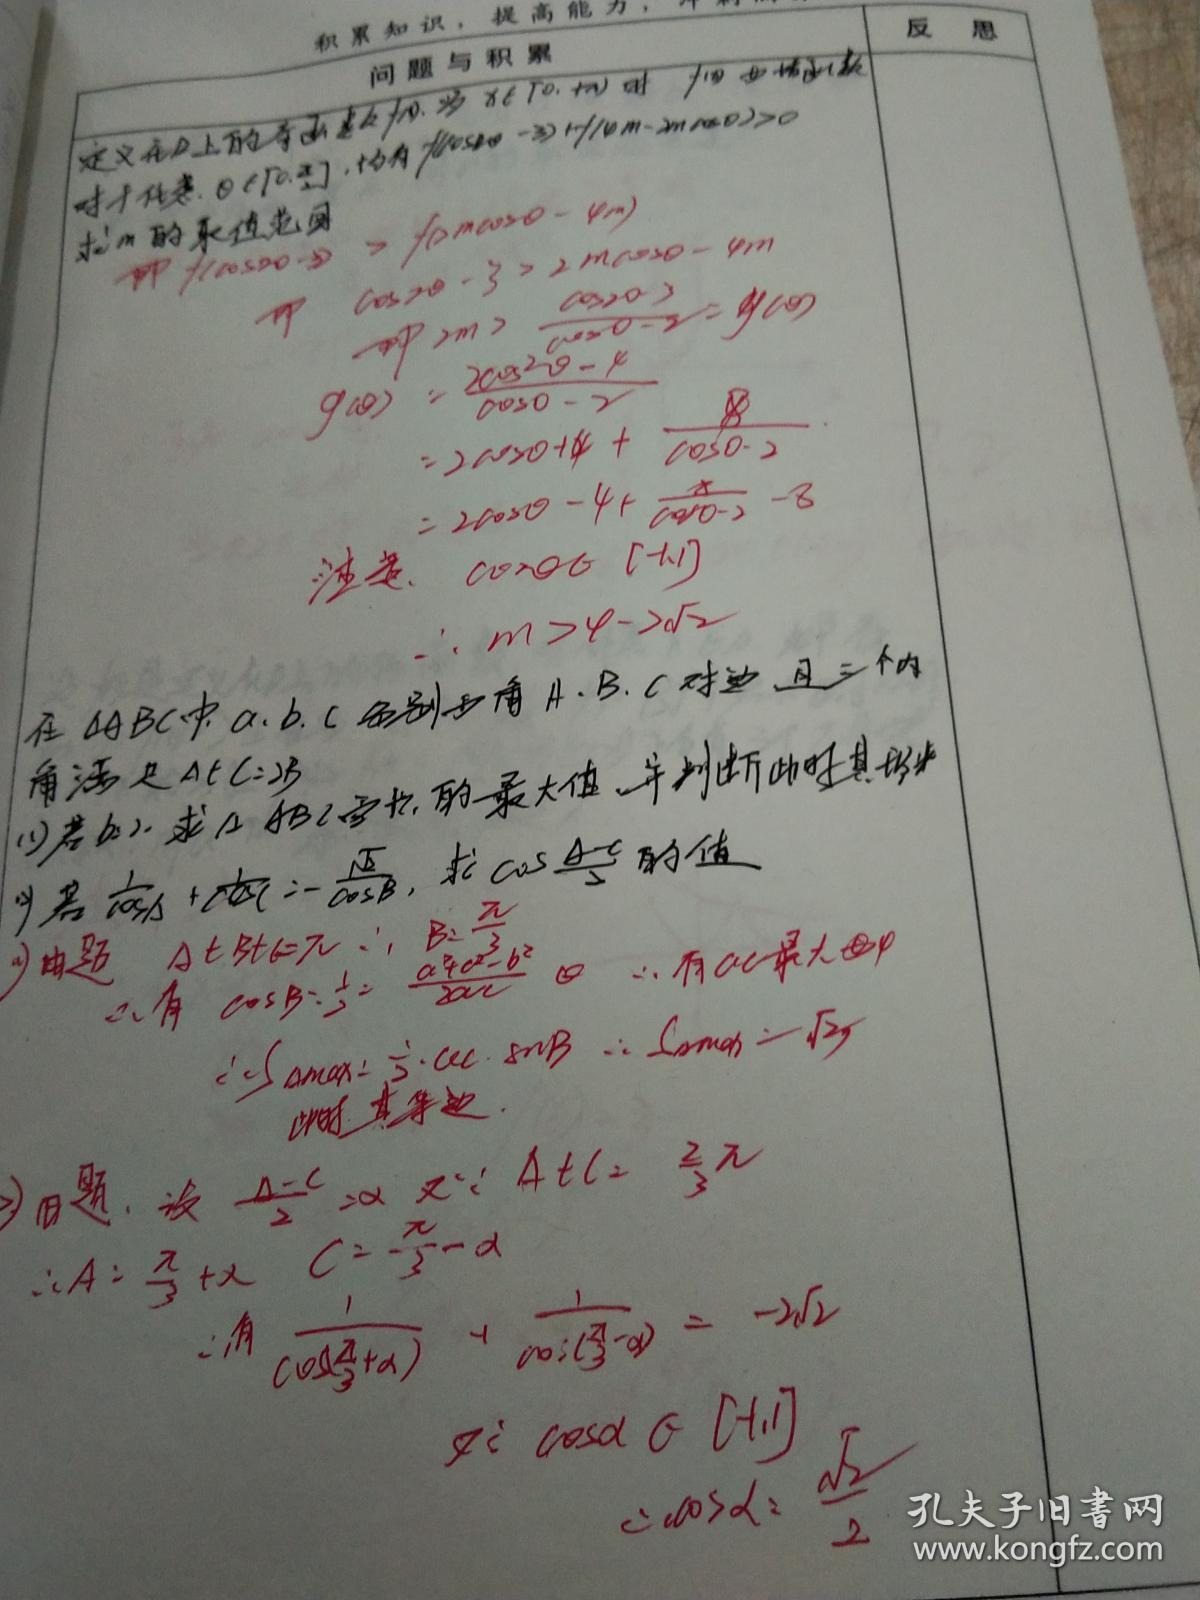 积累知识，提高能力，
问题与积累
反思
定义在R上的奇函数f(x).当x∈[0,+∞)时 f(x)
对于任意.θ∈[0.π/2],均有f(cos2θ-3)+f(4m-2mcosθ)>0
求m的取值范围
即 f(cos2θ-3) > f(2mcosθ-4m)
即 cos2θ-3>2mcosθ-4m
即 2m> (cos2θ-3)/(cosθ-2) = g(θ)
g(θ) = (2cos²θ-4)/(cosθ-2)
=2cosθ+4+
cosθ-2
=2cosθ-4+
注意. cosθ∈[-1,1]
∴ m>4-2√2
在△ABC中.a.b.c分别为角A.B.C对边 且三个内
角满足A+C=2B
(1)若b=2.求△ABC 的最大值.并判断此时其形状
若 1/cosA + 1/cosC = - √2/cosB, 求cos (A-C)/2 的值
由题 A+B+C=π ∴ B=π/3
∴有 cosB=1/2= (a²+c²-b²)/2ac ∴有ac最大为4
∴S△max=1/2·ac·sinB ∴S△max=√3
此时其等边.
由题.设 (A-C)/2 =α 又∵ A+C= 2/3 π
∴A= π/3 +α C= π/3 -α
∴有 1/cos(π/3+α) + 1/cos(π/3-α) = -2√2
又∵ cosα∈[-1,1]
∴cosα= √2/2
孔夫子旧书网
www.kongfz.com